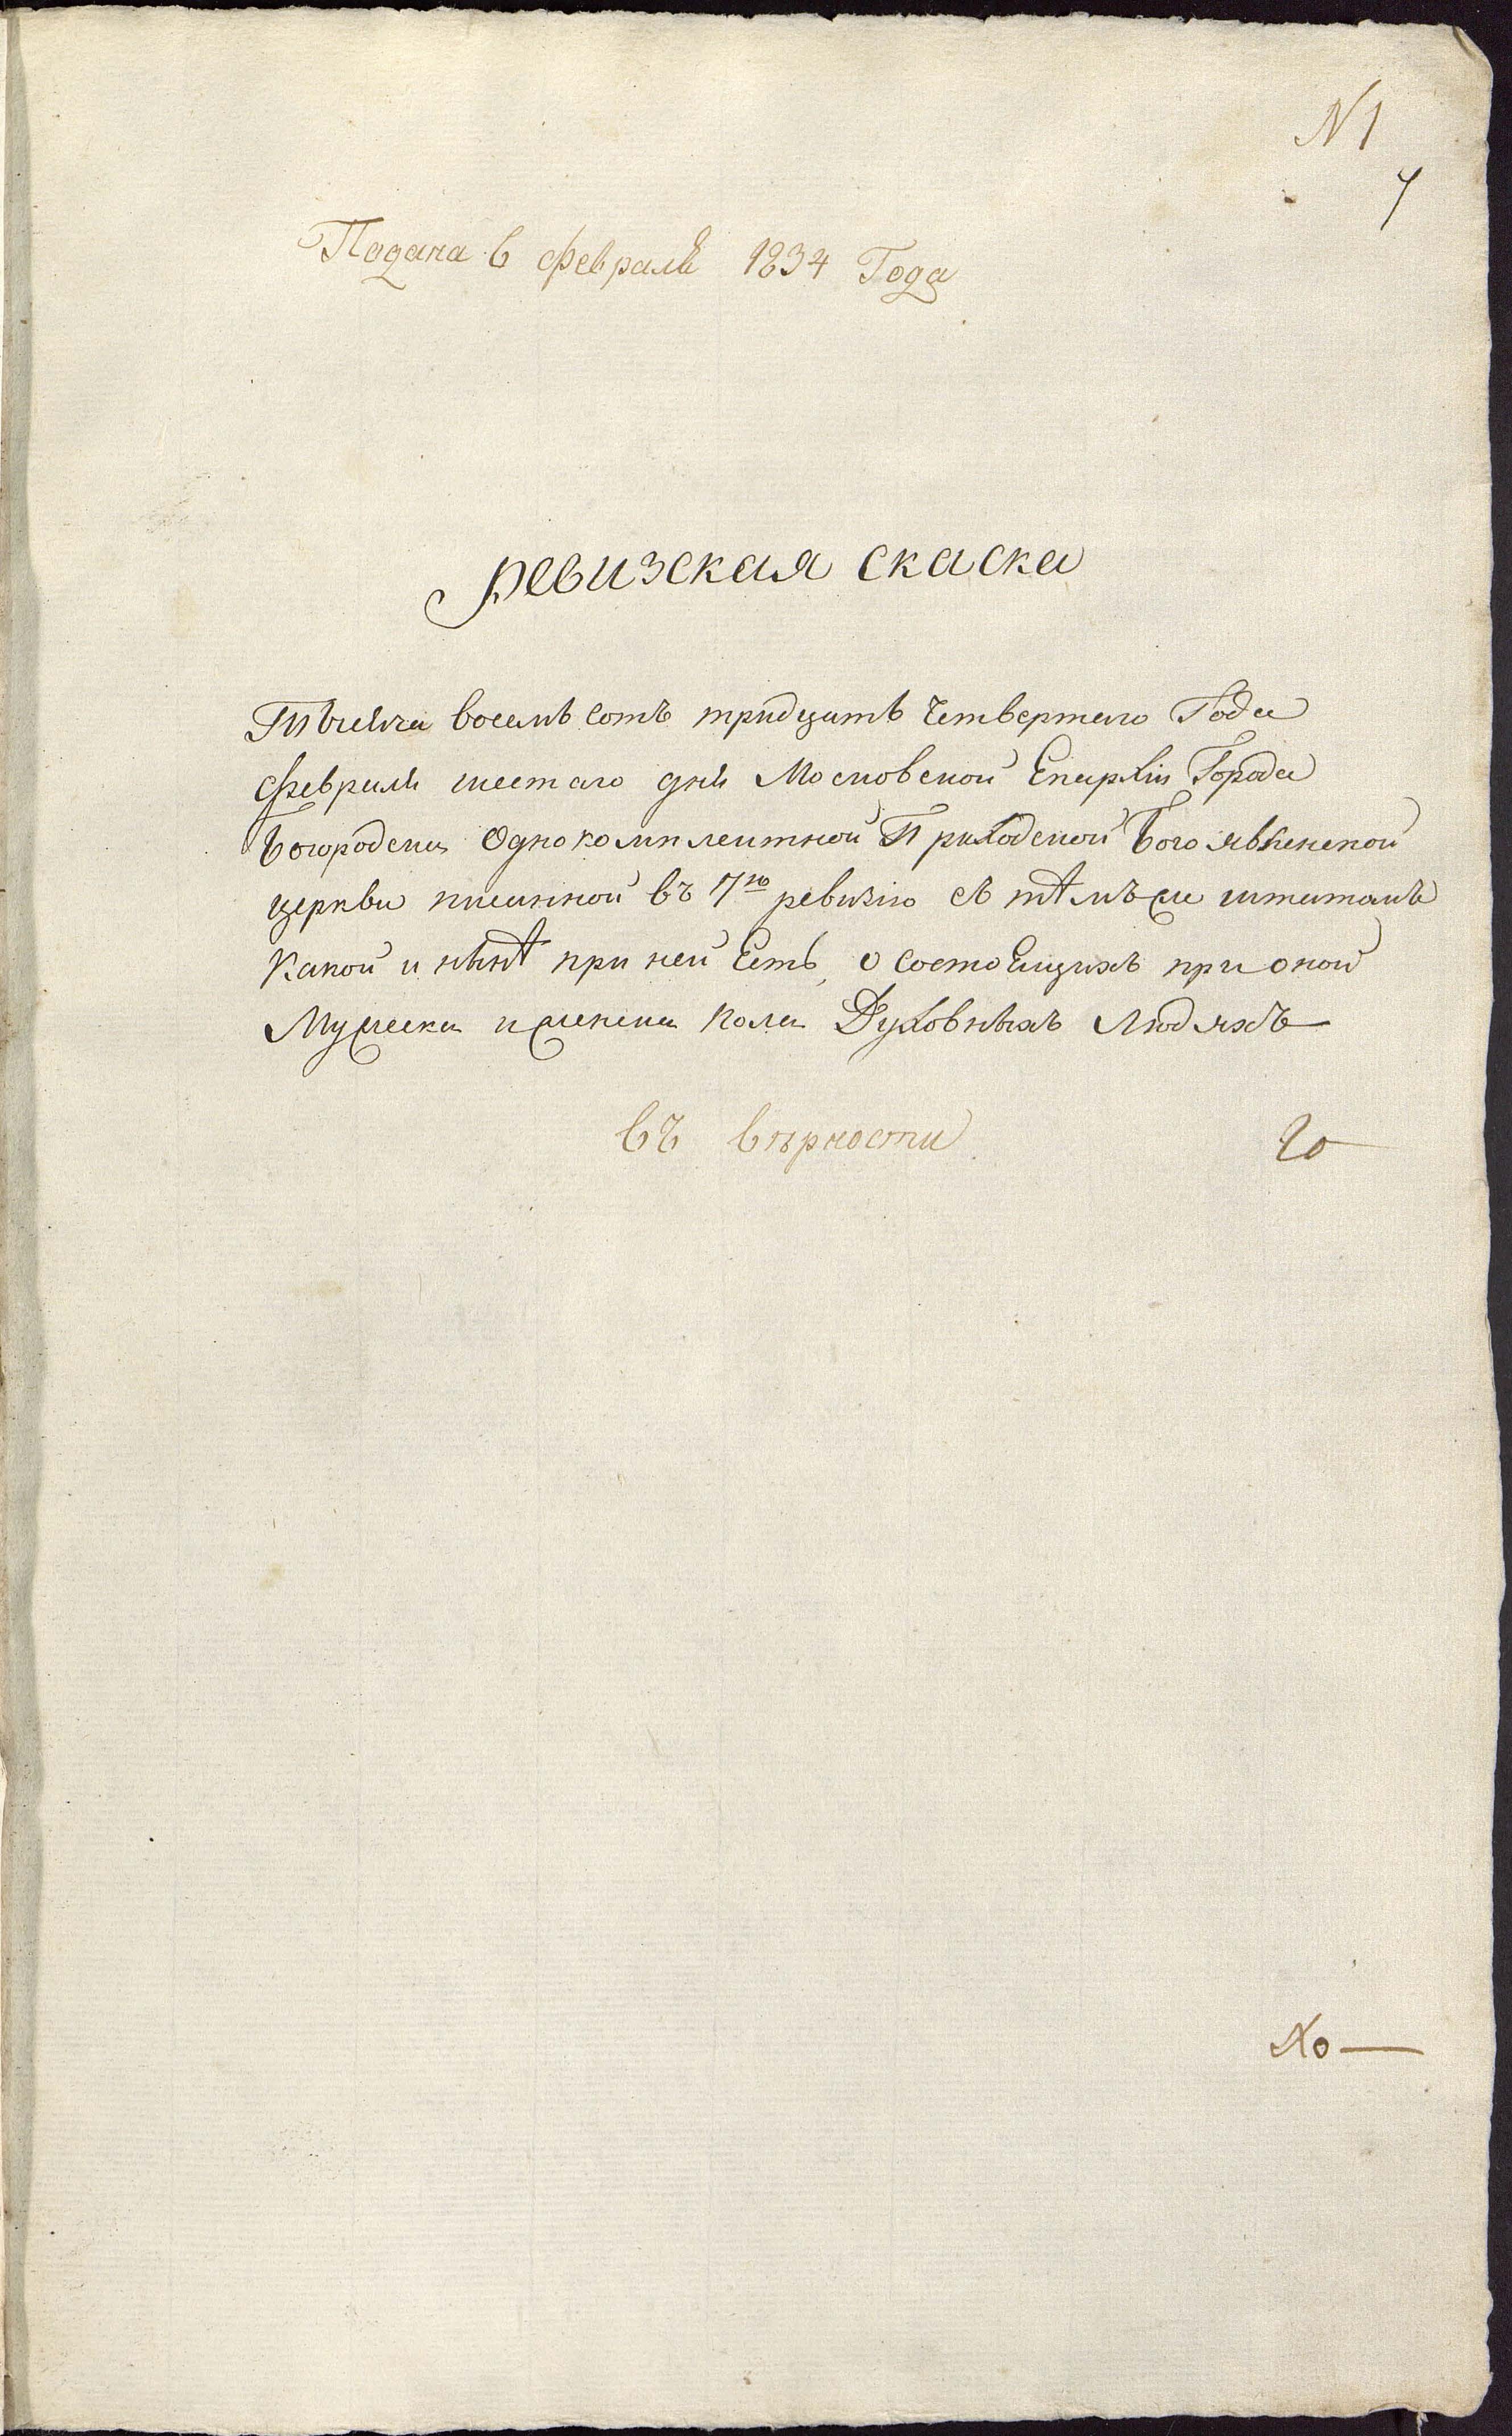 N 1
7
Подана в феврале 1834 Года
ревизская скаска
Тысяча восемь сотъ тридцать четвертаго Года
Февраля шестаго дня Московской Епархiи Города
Богородска Однокомплектной Приходской Богоявленской
церкви писанной въ 7ю ревизiю съ тѣмъ же штатомъ
Какой и нынѣ при ней Есть, о состоящихъ при оной
Мужеска и женска пола Духовныхъ Людяхъ
въ вѣрности